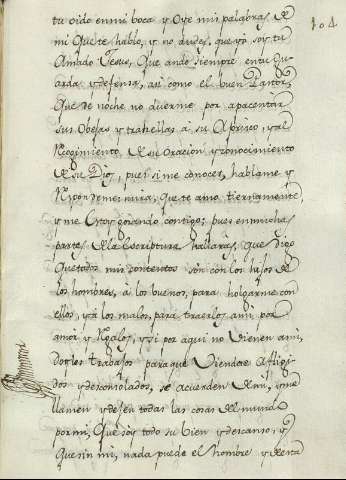 104
tu oido en mi boca y oye mis palabras, 
mi que te hablo, y no dudes, que yo soy tu
Amado Jesus, que ando siempre en tu Gu
arda y defensa, asi como el buen Pastor,
que de noche no duerme por apacentar
sus Obejas y traherllas â su Aprisco, y al
Recogimiento de su oracion y conocimiento
de su Dios, pues si me conoces, hablame y
Respondeme: mira, que te amo tiernamente,
y me estoy gozando contigo; pues en muchas
partes de la Escriptura hallaràs, que digo
que todos mis contentos son con los hijos de
los hombres, à los buenos, para holgarme con
ellos, y à los malos, para traerlos a mi por
amor y Regalos, y si por aqui no vienen a mi,
doyles trabajos para que viendose afligi
dos y desconsolados, se acuerden de mi, y me
llamen y dexen todas las cosas del mundo
por mi, que soy todo su bien y descanso, y
que sin mi, nada puede el hombre y